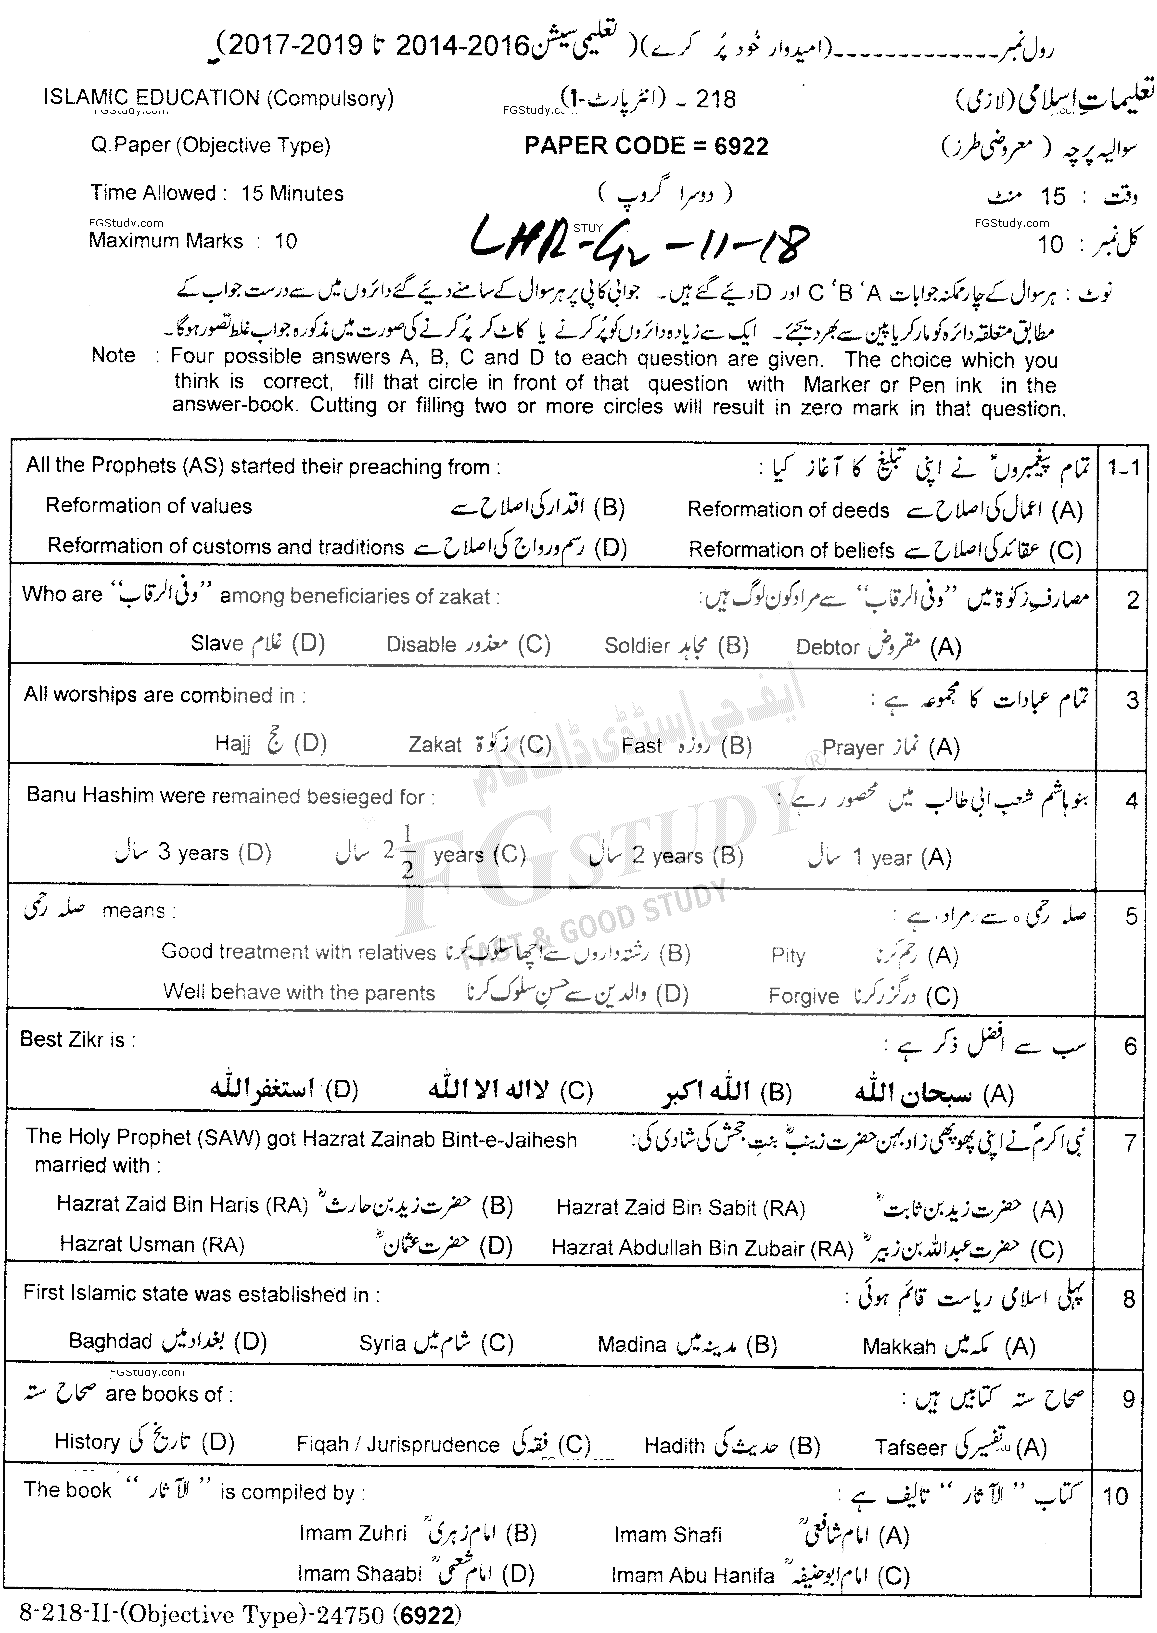 رول نمبر ـ ـ ـ ـ ـ ـ ـ ـ ـ ـ ـ ـ ـ (امیدوار خود پُر کرے) (تعلیمی سیشن 2016-2014 تا 2019-2017)
ISLAMIC EDUCATION (Compulsory) (انٹر پارٹ-1) ـ 218 تعلیماتِ اسلامی (لازمی)
FGStudy.com FGStudy.c
Q.Paper (Objective Type) PAPER CODE = 6922 سوالیہ پرچہ (معروضی طرز)
Time Allowed : 15 Minutes (دوسرا گروپ) وقت : 15 منٹ
FGStudy.com STUY FGStudy.com
Maximum Marks : 10 LHR-G2-11-18 کل نمبر : 10
نوٹ : ہر سوال کے چار ممکنہ جوابات A ' B ' C اور D دیئے گئے ہیں۔ جوابی کاپی پر ہر سوال کے سامنے دیئے گئے دائروں میں سے درست جواب کے
مطابق متعلقہ دائرہ کو مارکر یا پین سے بھر دیجئے۔ ایک سے زیادہ دائروں کو پُر کرنے یا کاٹ کر پُر کرنے کی صورت میں مذکورہ جواب غلط تصور ہوگا۔
Note : Four possible answers A, B, C and D to each question are given. The choice which you
think is correct, fill that circle in front of that question with Marker or Pen ink in the
answer-book. Cutting or filling two or more circles will result in zero mark in that question.
All the Prophets (AS) started their preaching from : تمام پیغمبروںؑ نے اپنی تبلیغ کا آغاز کیا : 1-1
Reformation of values اقدار کی اصلاح سے (B) Reformation of deeds اعمال کی اصلاح سے (A)
Reformation of customs and traditions رسم و رواج کی اصلاح سے (D) Reformation of beliefs عقائد کی اصلاح سے (C)
Who are "وفی الرقاب" among beneficiaries of zakat : مصارفِ زکوٰۃ میں "وفی الرقاب" سے مراد کون لوگ ہیں: 2
Slave غلام (D) Disable معذور (C) Soldier مجاہد (B) Debtor مقروض (A)
All worships are combined in : تمام عبادات کا مجموعہ ہے : 3
Hajj حج (D) Zakat زکوٰۃ (C) Fast روزہ (B) Prayer نماز (A)
Banu Hashim were remained besieged for : بنو ہاشم شعب ابی طالب میں محصور رہے : 4
3 years سال (D) 2 1/2 years سال (C) 2 years سال (B) 1 year سال (A)
صلہ رحمی means : صلہ رحمی سے مراد ہے : 5
Good treatment with relatives رشتہ داروں سے اچھا سلوک کرنا (B) Pity رحم کرنا (A)
Well behave with the parents والدین سے حسنِ سلوک کرنا (D) Forgive درگزر کرنا (C)
Best Zikr is : سب سے افضل ذکر ہے : 6
استغفر اللّٰه (D) لا اله الا اللّٰه (C) اللّٰه اكبر (B) سبحان اللّٰه (A)
The Holy Prophet (SAW) got Hazrat Zainab Bint-e-Jaihesh نبی اکرمؐ نے اپنی پھوپھی زاد بہن حضرت زینبؓ بنتِ جحش کی شادی کی: 7
married with :
Hazrat Zaid Bin Haris (RA) حضرت زید بن حارثؓ (B) Hazrat Zaid Bin Sabit (RA) حضرت زید بن ثابتؓ (A)
Hazrat Usman (RA) حضرت عثمانؓ (D) Hazrat Abdullah Bin Zubair (RA) حضرت عبداللہ بن زبیرؓ (C)
First Islamic state was established in : پہلی اسلامی ریاست قائم ہوئی : 8
Baghdad بغداد میں (D) Syria شام میں (C) Madina مدینہ میں (B) Makkah مکہ میں (A)
FGStudy.com
صحاح ستہ are books of : صحاح ستہ کتابیں ہیں : 9
History تاریخ کی (D) Fiqah / Jurisprudence فقہ کی (C) Hadith حدیث کی (B) Tafseer تفسیر کی (A)
The book "الآثار" is compiled by : کتاب "الآثار" تالیف ہے : 10
Imam Zuhri امام زہریؒ (B) Imam Shafi امام شافعیؒ (A)
Imam Shaabi امام شعبیؒ (D) Imam Abu Hanifa امام ابوحنیفہؒ (C)
8-218-II-(Objective Type)-24750 (6922)
ایف جی اسٹڈی ڈاٹ کام
FGSTUDY®
FAST & GOOD STUDY